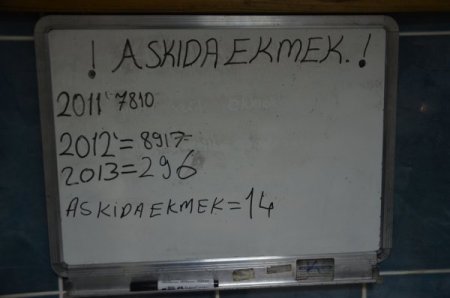 ! ASKIDA EKMEK. !
2011' 7810
2012'= 8917=
2013=296
ASKIDA EKMEK=14